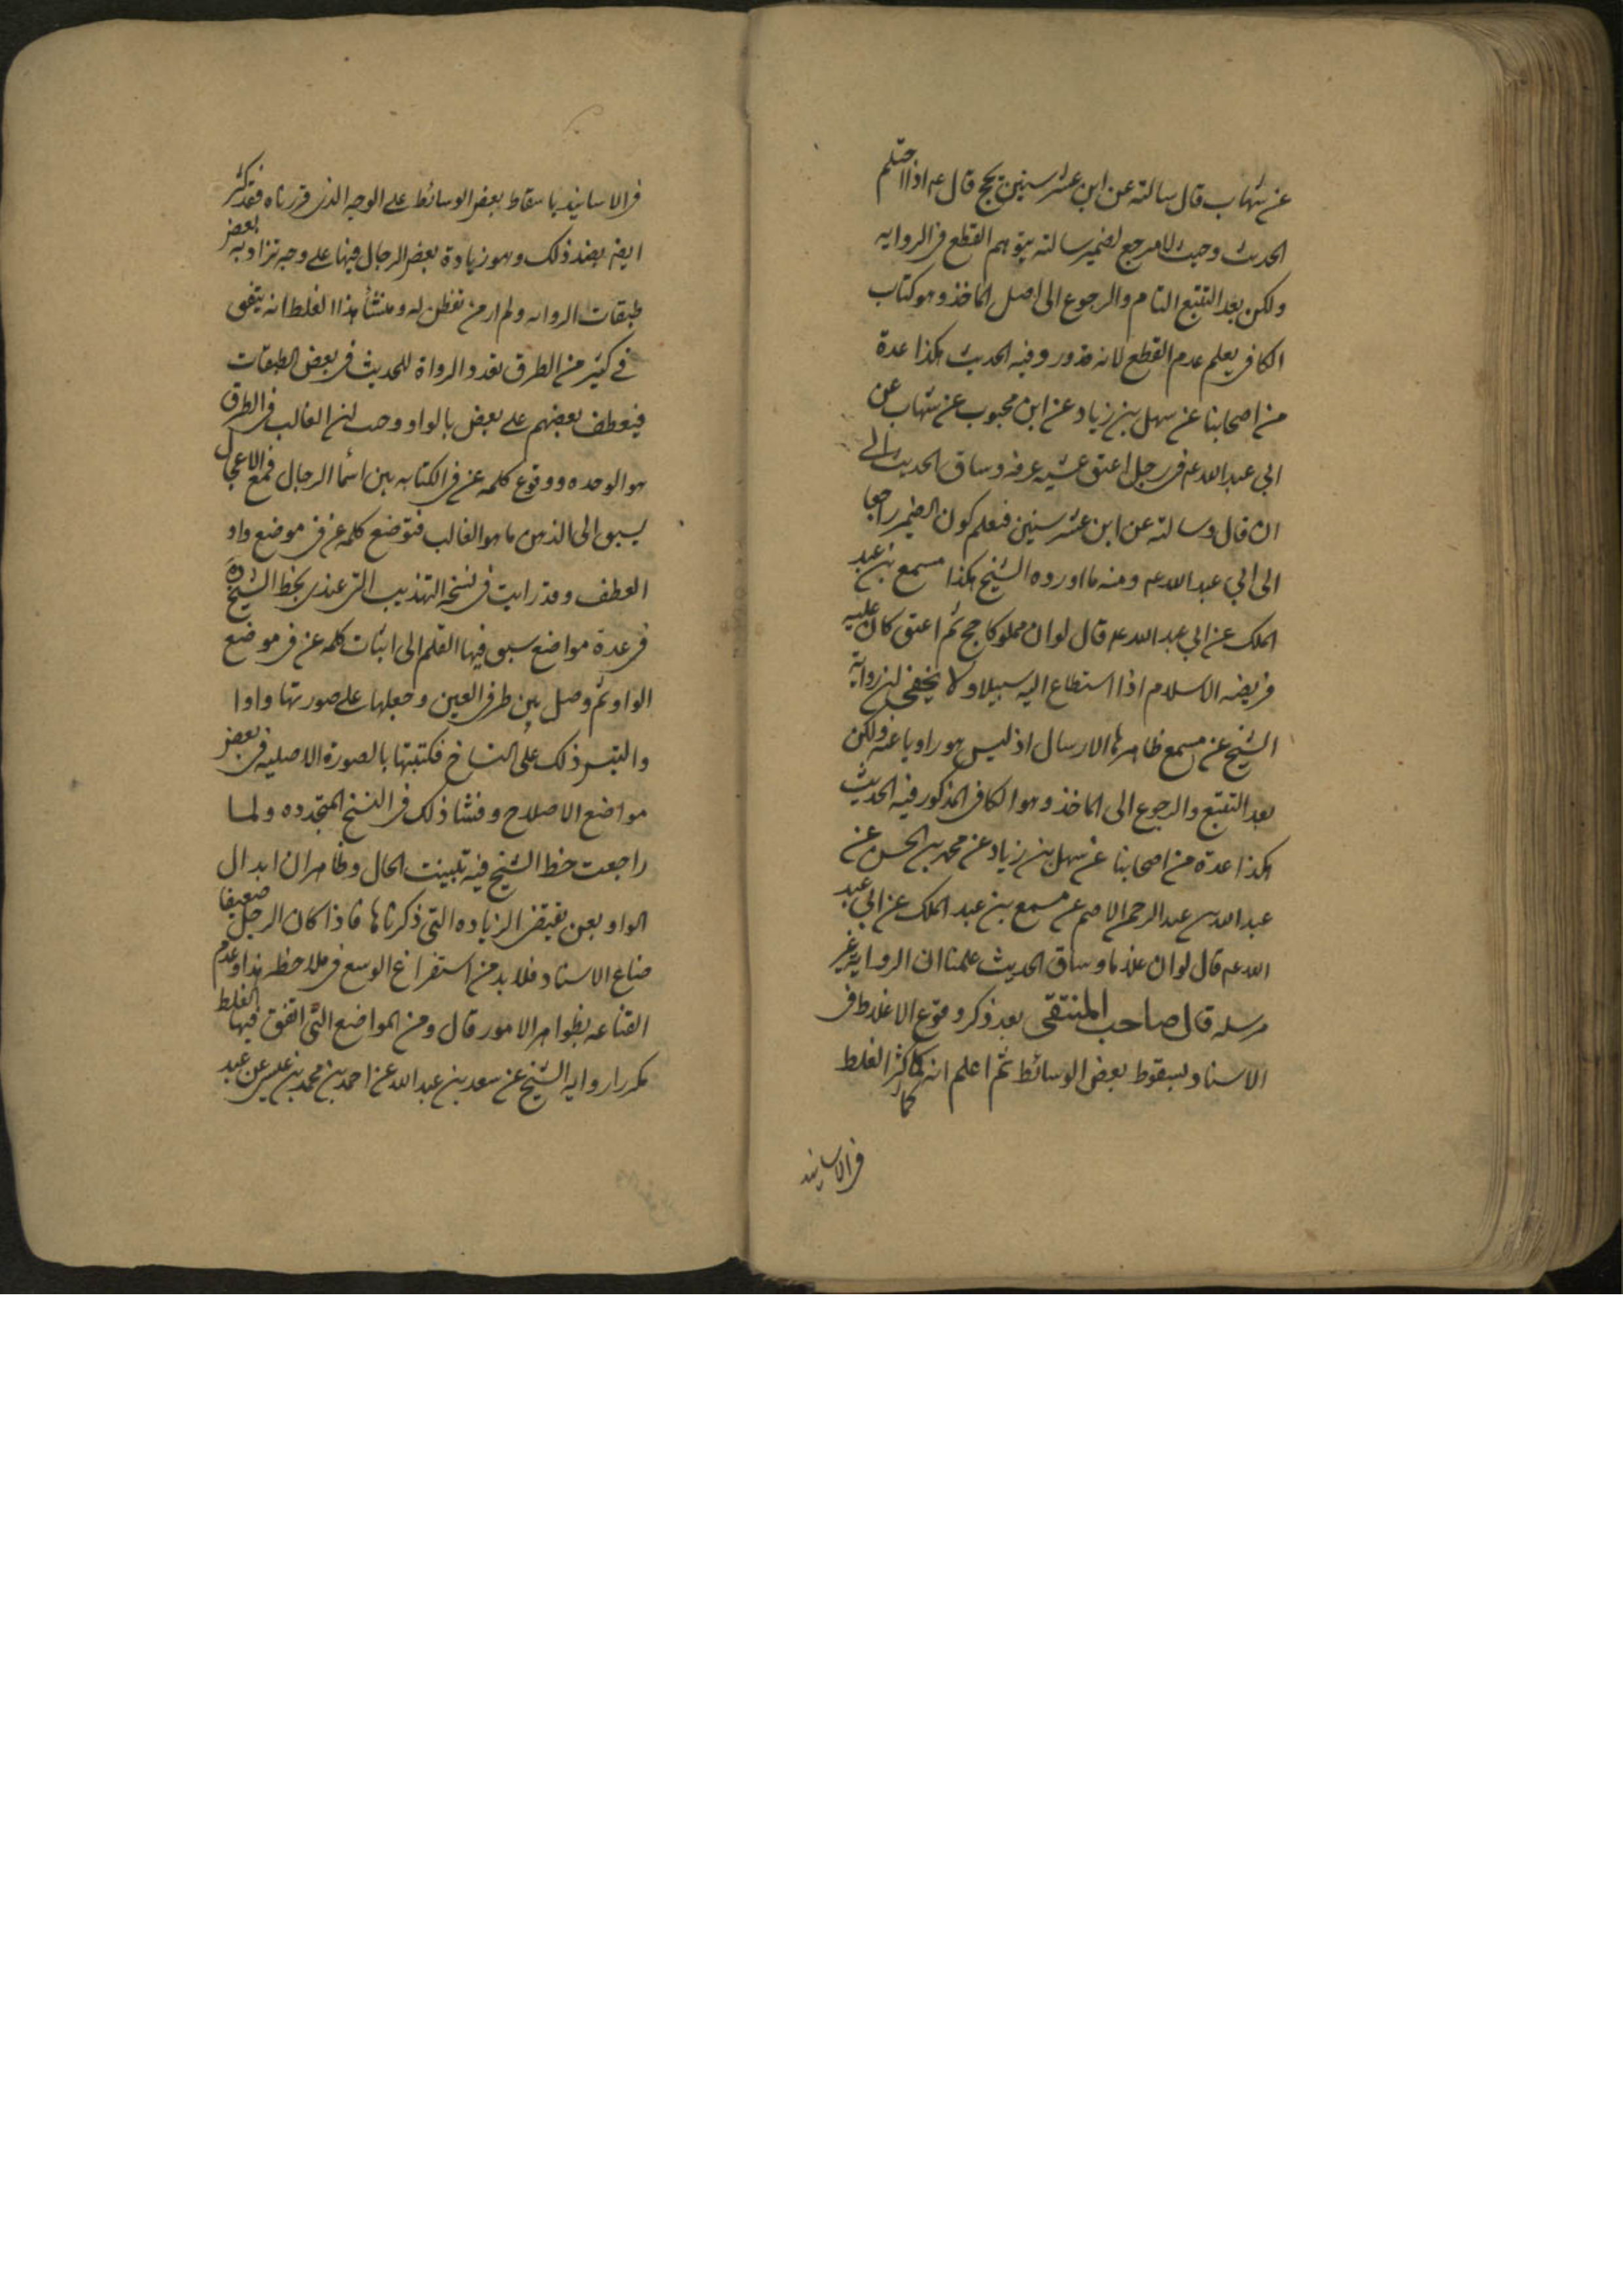 عن شهاب قال سالته عن ابن عشر سنين يحج قال ع اذا احتلم
الحديث وحيث لا مرجع لضمير سالته يتوهم القطع في الروايه
ولكن بعد التتبع التام والرجوع الى اصل الماخذ وهو كتاب
الكافي يعلم عدم القطع لانه وفيه الحديث هكذا عدة
من اصحابنا عن سهل بن زياد عن ابن محبوب عن شهاب عن
ابي عبد الله ع في رجل اعتق عشيه عرفه وساق الحديث الى
ان قال وسالته عن ابن عشر سنين فيعلم كون الضمير راجعا
الى ابي عبد الله ع ومنه ما اورده الشيخ هكذا مسمع بن عبد
الملك عن ابي عبد الله ع قال لو ان مملوكا حج ثم اعتق كان عليه
فريضه الاسلام اذا استطاع اليه سبيلا ولا يخفى ان رواية
الشيخ عن مسمع ظاهرها الارسال اذ ليس هو راويا عنه ولكن
بعد التتبع والرجوع الى الماخذ وهو الكافي المذكور فيه الحديث
هكذا عدة من اصحابنا عن سهل بن زياد عن محمد بن الحسن عن
عبد الله بن عبد الرحمن الاصم عن مسمع بن عبد الملك عن ابي عبد
الله ع قال لو ان غلاما وساق الحديث علمنا ان الرواية غير
مرسله قال صاحب المنتقى بعد ذكر وقوع الاغلاط في
الاسناد بسقوط بعض الوسائط ثم اعلم انه كما كثر الغلط
كما
في الاسانيد
في الاسانيد باسقاط بعض الوسائط على الوجه الذي قررناه فقد كثر
ايضا ضد ذلك وهو زيادة بعض الرجال فيها على وجه تزاد به بعض
طبقات الروايه ولم ار من تفطن له ومنشأ هذا الغلط انه يتفق
في كثير من الطرق تعدد الرواة للحديث في بعض الطبقات
فيعطف بعضهم على بعض بالواو وحيث ان الغالب في الطرق
هو الوحده ووقوع كلمه عن في الكتابه بين اسما الرجال فمع الاعجال
يسبق الى الذهن ما هو الغالب فتوضع كلمه عن في موضع واو
العطف وقد رايت في نسخه التهذيب التي عندي بخط الشيخ ره
في عدة مواضع سبق فيها القلم الى اثبات كلمه عن في موضع
الواو ثم وصل بين طرفي العين وجعلها على صورتها واوا
والتبس ذلك على النساخ فكتبتها بالصورة الاصليه في بعض
مواضع الاصلاح وفشا ذلك في النسخ المتجدده ولما
راجعت خط الشيخ فيه تبينت الحال وظاهر ان ابدال
الواو بعن يقتضي الزياده التي ذكرناها فاذا كان الرجل ضعيفا
ضاع الاسناد فلا بد من استفراغ الوسع في ملاحظه هذا وعدم
القناعه بظواهر الامور قال ومن المواضع التي اتفق فيها الغلط
مكررا روايه الشيخ عن سعد بن عبد الله عن احمد بن محمد بن عيسى عن عبد